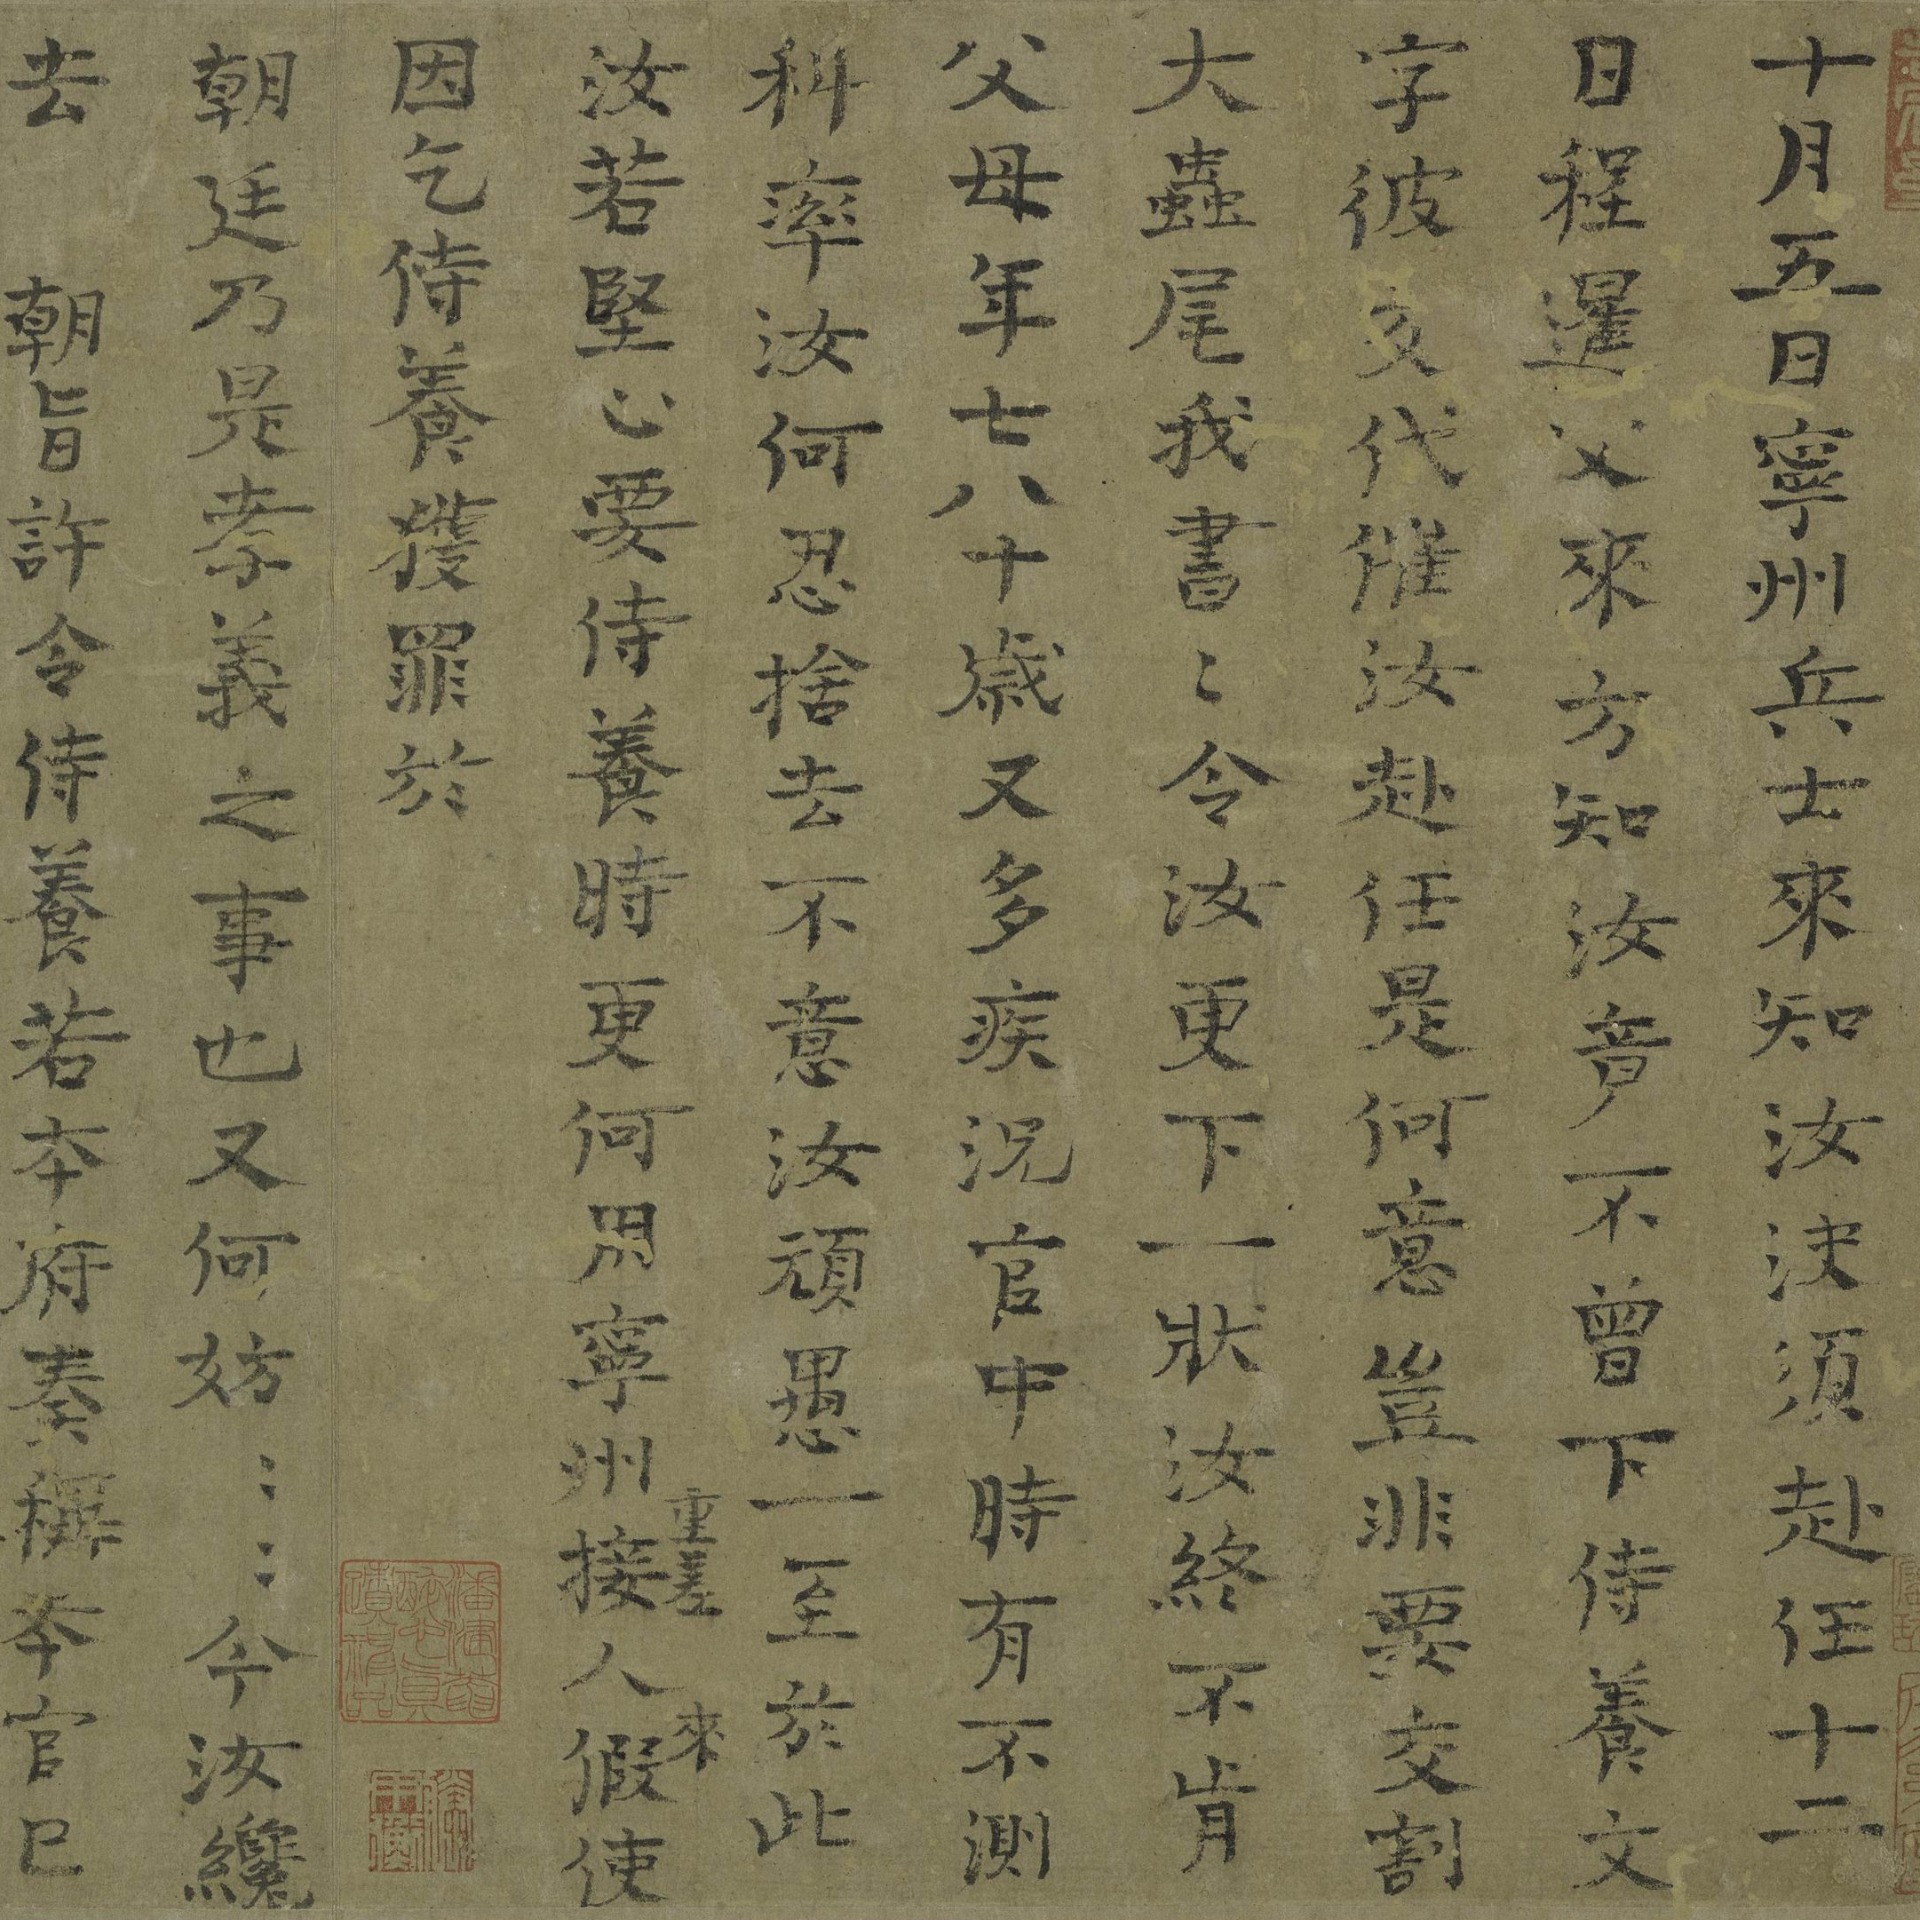 十月五日寧州兵士來知汝決須赴任十二
日程暹父來方知汝竟不曾下侍養文
字彼交代催汝赴任是何意豈非要交割
大蟲尾我書〻令汝更下一狀汝終不肯
父母年七八十歲又多疾況官中時有不測
科率汝何忍捨去不意汝頑愚一至於此
汝若堅心要侍養時更何用寧州重差接人來假使
因乞侍養獲罪於
朝廷乃是孝義之事也又何妨〻〻今汝纔
去 朝旨許令侍養若本府奏稱本官已